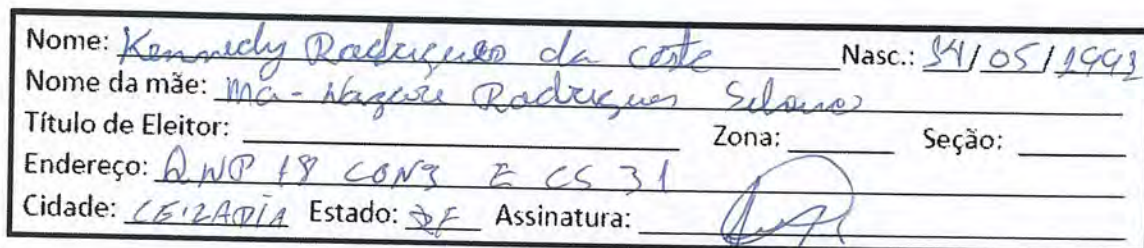 Nome: Kennedy Rodrigues da Costa Nasc.: /05/1993
Nome da mãe: Ma - Nazaré Rodrigues
Título de Eleitor: Zona: Seção:
Endereço: QNP 18 CONJ E CS 31
Cidade: CEILADIA Estado: DF Assinatura: